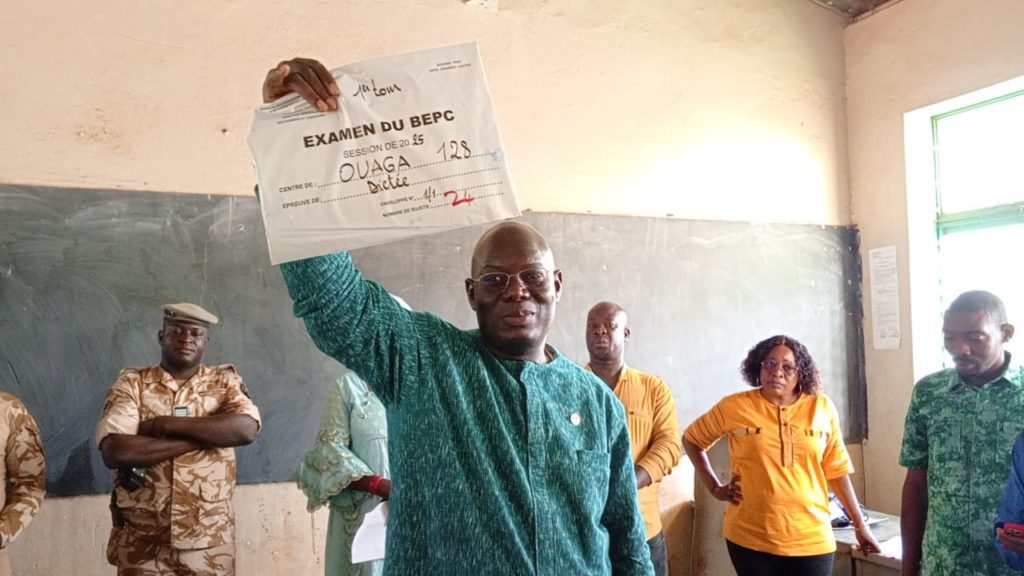 1er tour
EXAMEN DU BEPC
SESSION DE 2025
CENTRE DE : OUAGA 128
EPREUVE DE Dictée
ENVELOPPE N° 1/1
NOMBRE DE SUJETS 24